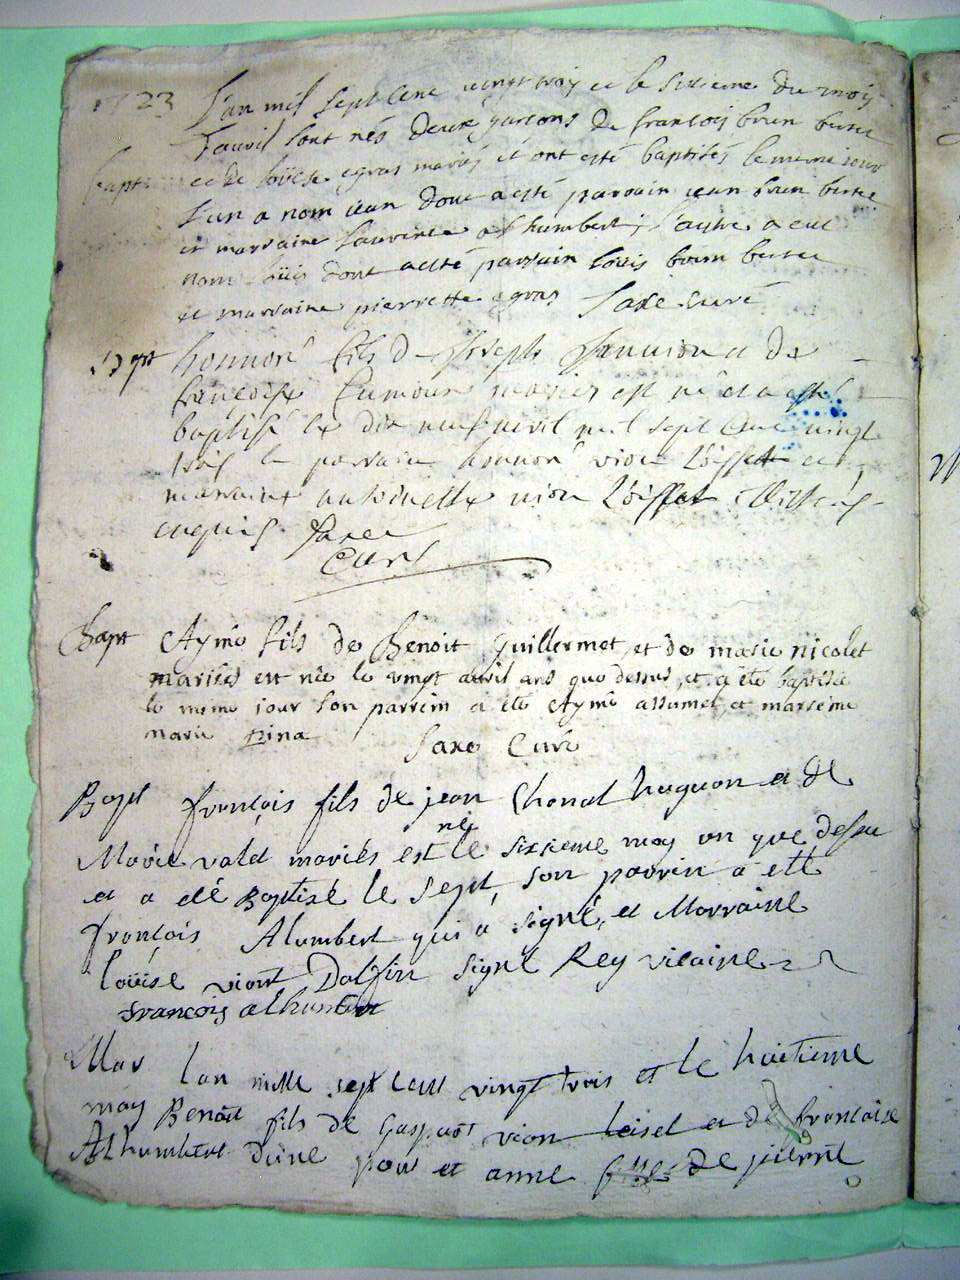 1723 L'an mil sept cent vingt trois et le sixieme du mois
d'avril sont nés deux garçons de françois brun buttie
bapt et de loüise egras mariés et ont esté baptisés le meme jour
l'un a nom jean dont a esté parrain jean brun
et marraine laurence alhumbert, l'autre a eut
nom loüis dont a esté parrain loüis brun
et marraine pierrette egras Saxe curé
Bapt honnoré fils de Joseph et de
françoise mariés est né et a esté
baptisé le dix neuf avril mil sept cent vingt
trois le parrain honnoré vion loisset et
marraine antoinette vion loisset
requis Saxe
Curé
Bapt Aymé fils de Benoit Guillermet, et de marie nicolet
mariés est née le vingt avril ans que dessus, et a été baptisée
le meme jour son parrein a été Aymé assumel, et marreine
marie pina Saxe Curé
Bapt françois fils de jean Chonal huguon et de
né
Marie valet mariés est le sixsieme may an que dessu
et a été Baptisé le sept, son parrin a etté
françois Alumbert qui a signé, et Marraine
loüise viont Dalfin signé Rey vicaire
francois alhumbert
Mar lan mille sept cent vingt trois et le huitieme
may Benoit fils de Gaspart vion loisel et de francoise
Alhumbert dune part et anne fille de pierre